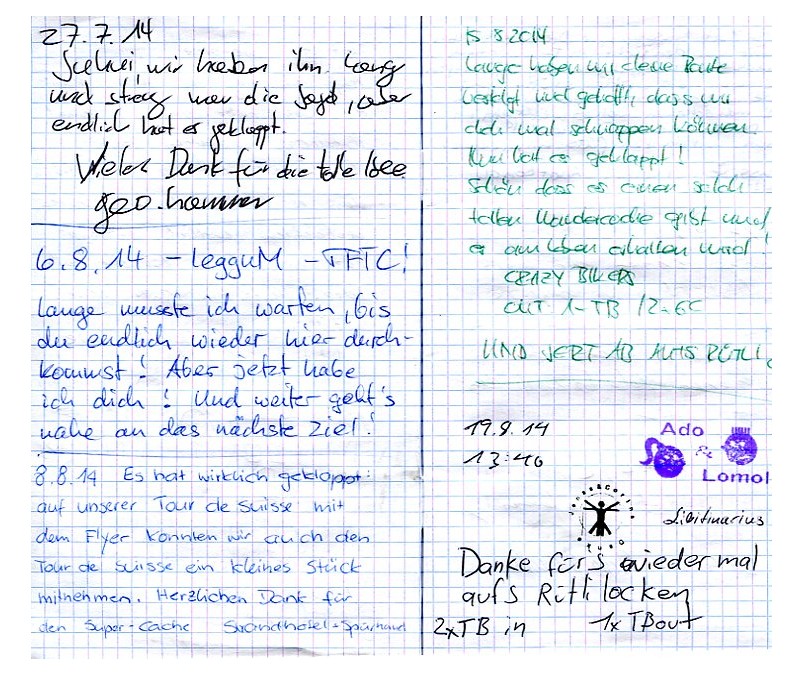 27.7.14
wir haben ihn lang
und streng war die Jagd, aber
endlich hat es geklappt.
Vielen Dank für die tolle Idee
geo.hammer
6.8.14 - legguM - TFTC!
Lange musste ich warten, bis
du endlich wieder hier durch-
kommst! Aber jetzt habe
ich dich! Und weiter geht's
nahe an das nächste Ziel!
8.8.14 Es hat wirklich geklappt:
auf unserer Tour de Suisse mit
dem Flyer konnten wir auch den
Tour de Suisse ein kleines Stück
mitnehmen. Herzlichen Dank für
den Super-Cache Strandhotel+Sparhund
15 8 2014
Lange haben wir deine Route
verfolgt und gehofft, dass wir
dich mal schnappen können.
Nun hat es geklappt!
Schön dass es einen solch
tollen Wandercache gibt und
er am leben erhalten wird!
CRAZY BIKERS
OUT 1-TB / 2-GC
UND JETZT AB AUFS RÜTLI
19.8.14
13:46
Ado
&
Lomol
Danke für's wieder mal
aufs Rütli locken
2xTB in 1x TBout